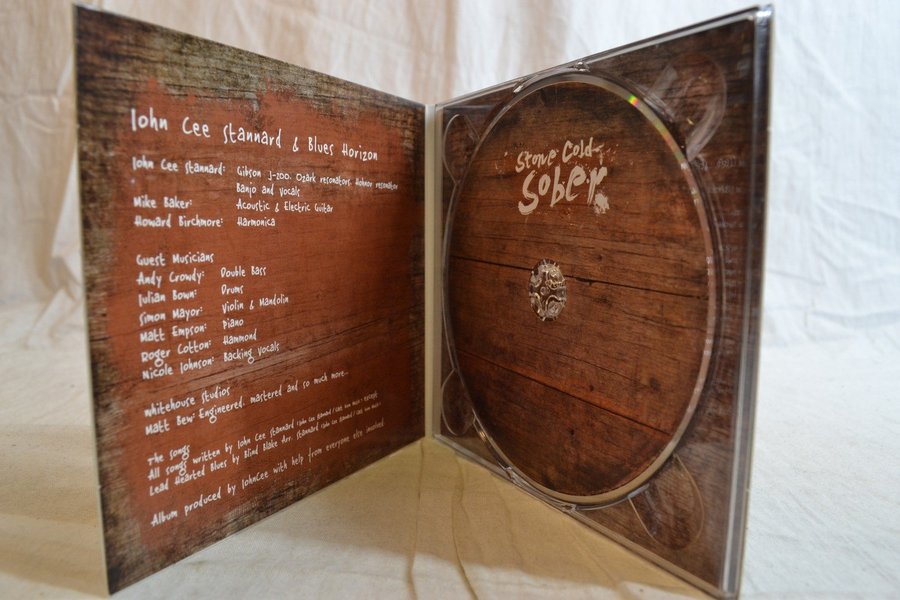 John Cee Stannard & Blues Horizon
John Cee Stannard: Gibson J-200, Ozark resonators, Hohner resonator
Banjo and Vocals
Mike Baker: Acoustic & Electric Guitar
Howard Birchmore: Harmonica
Guest Musicians
Andy Crowdy: Double Bass
Julian Bown: Drums
Simon Mayor: Violin & Mandolin
Matt Empson: Piano
Roger Cotton: Hammond
Nicole Johnson: Backing Vocals
Whitehouse Studios
Matt Bew: Engineered, mastered and so much more...
The songs
All songs written by John Cee Stannard (John Cee Stannard / Cast Iron Music) except
Lead Hearted Blues by Blind Blake Arr. Stannard (John Cee Stannard / Cast Iron Music)
Album produced by JohnCee with help from everyone else involved
Stone Cold
Sober